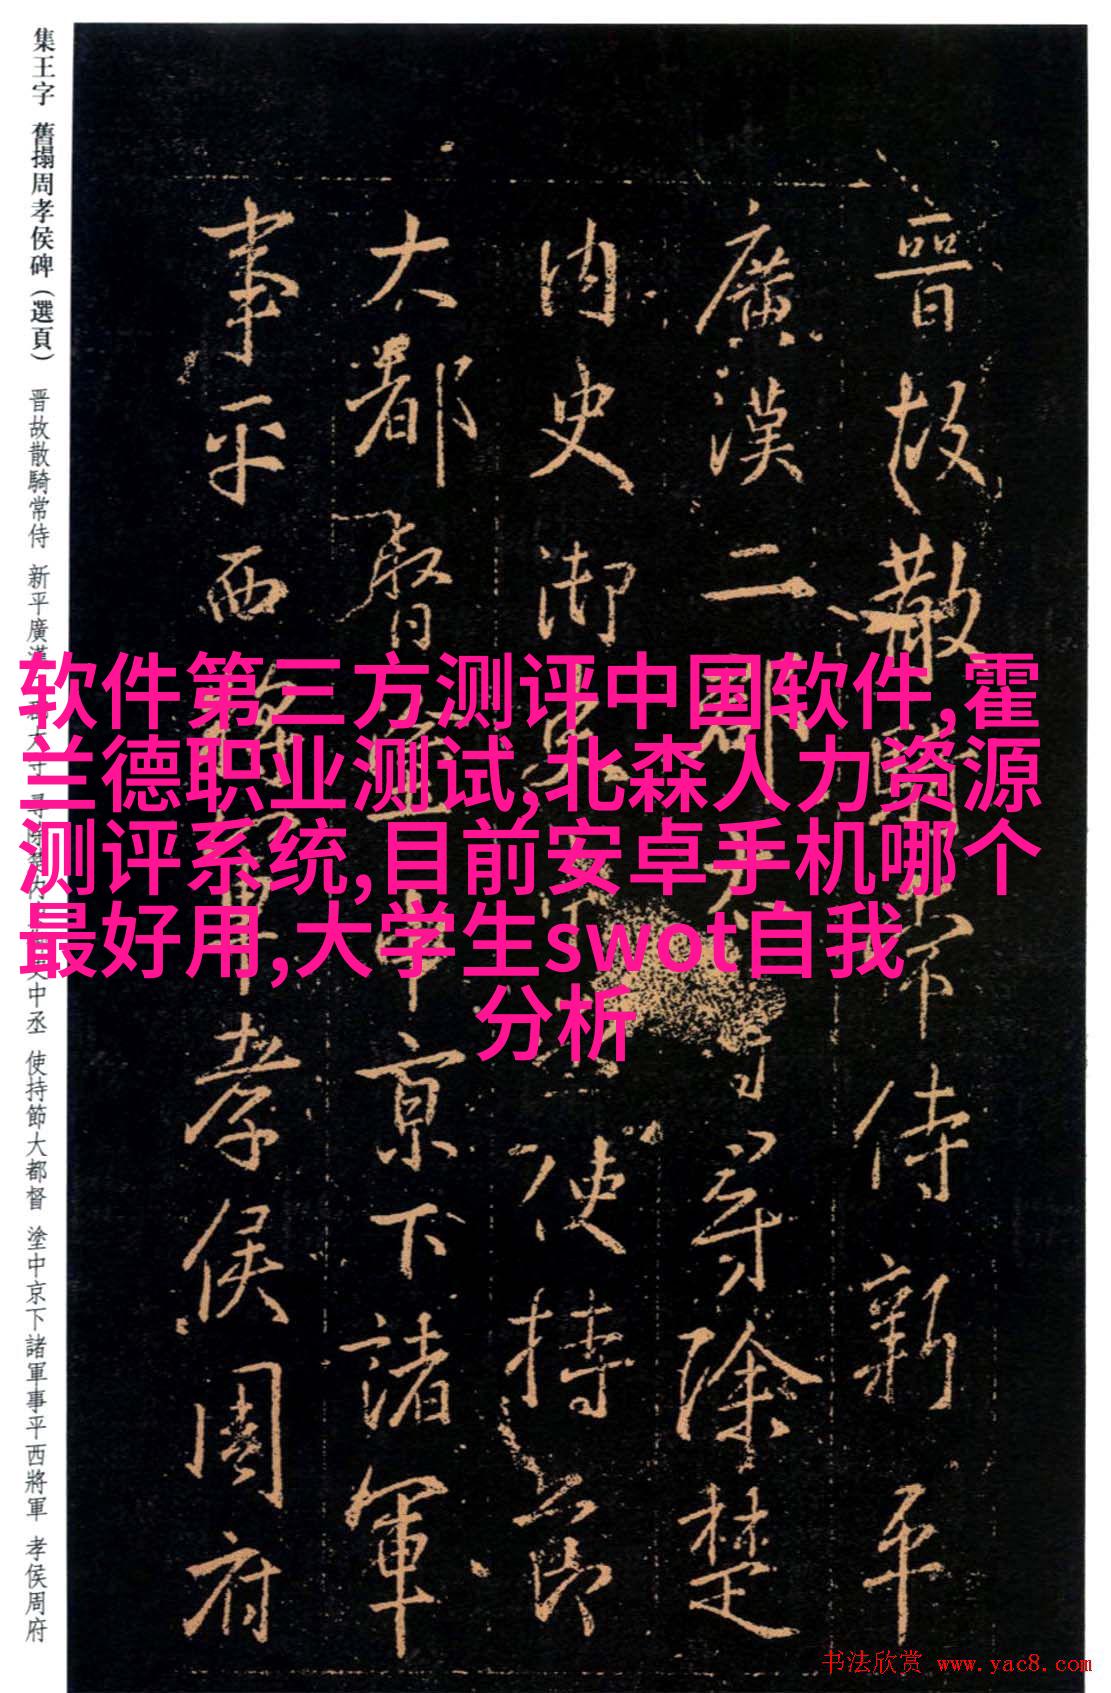 軟件第三方测评中国软件,霍
兰德职业测试,北森人力资源
测评系统,目前安卓手机哪个
最好用,大学生swot自我
分析
晋故散騎常侍新平
廣漢二郡太守尋除楚
内史御史中丞使持節
大都督塗中京下諸軍
事平西將軍孝侯周府
集王字 舊搨周孝侯碑(選頁) 晋故散騎常侍 新平廣漢二郡太守 尋除楚内史御史中丞 使持節大都督 塗中京下諸軍事平西將軍 孝侯周府
书法欣赏 www.yac8.com